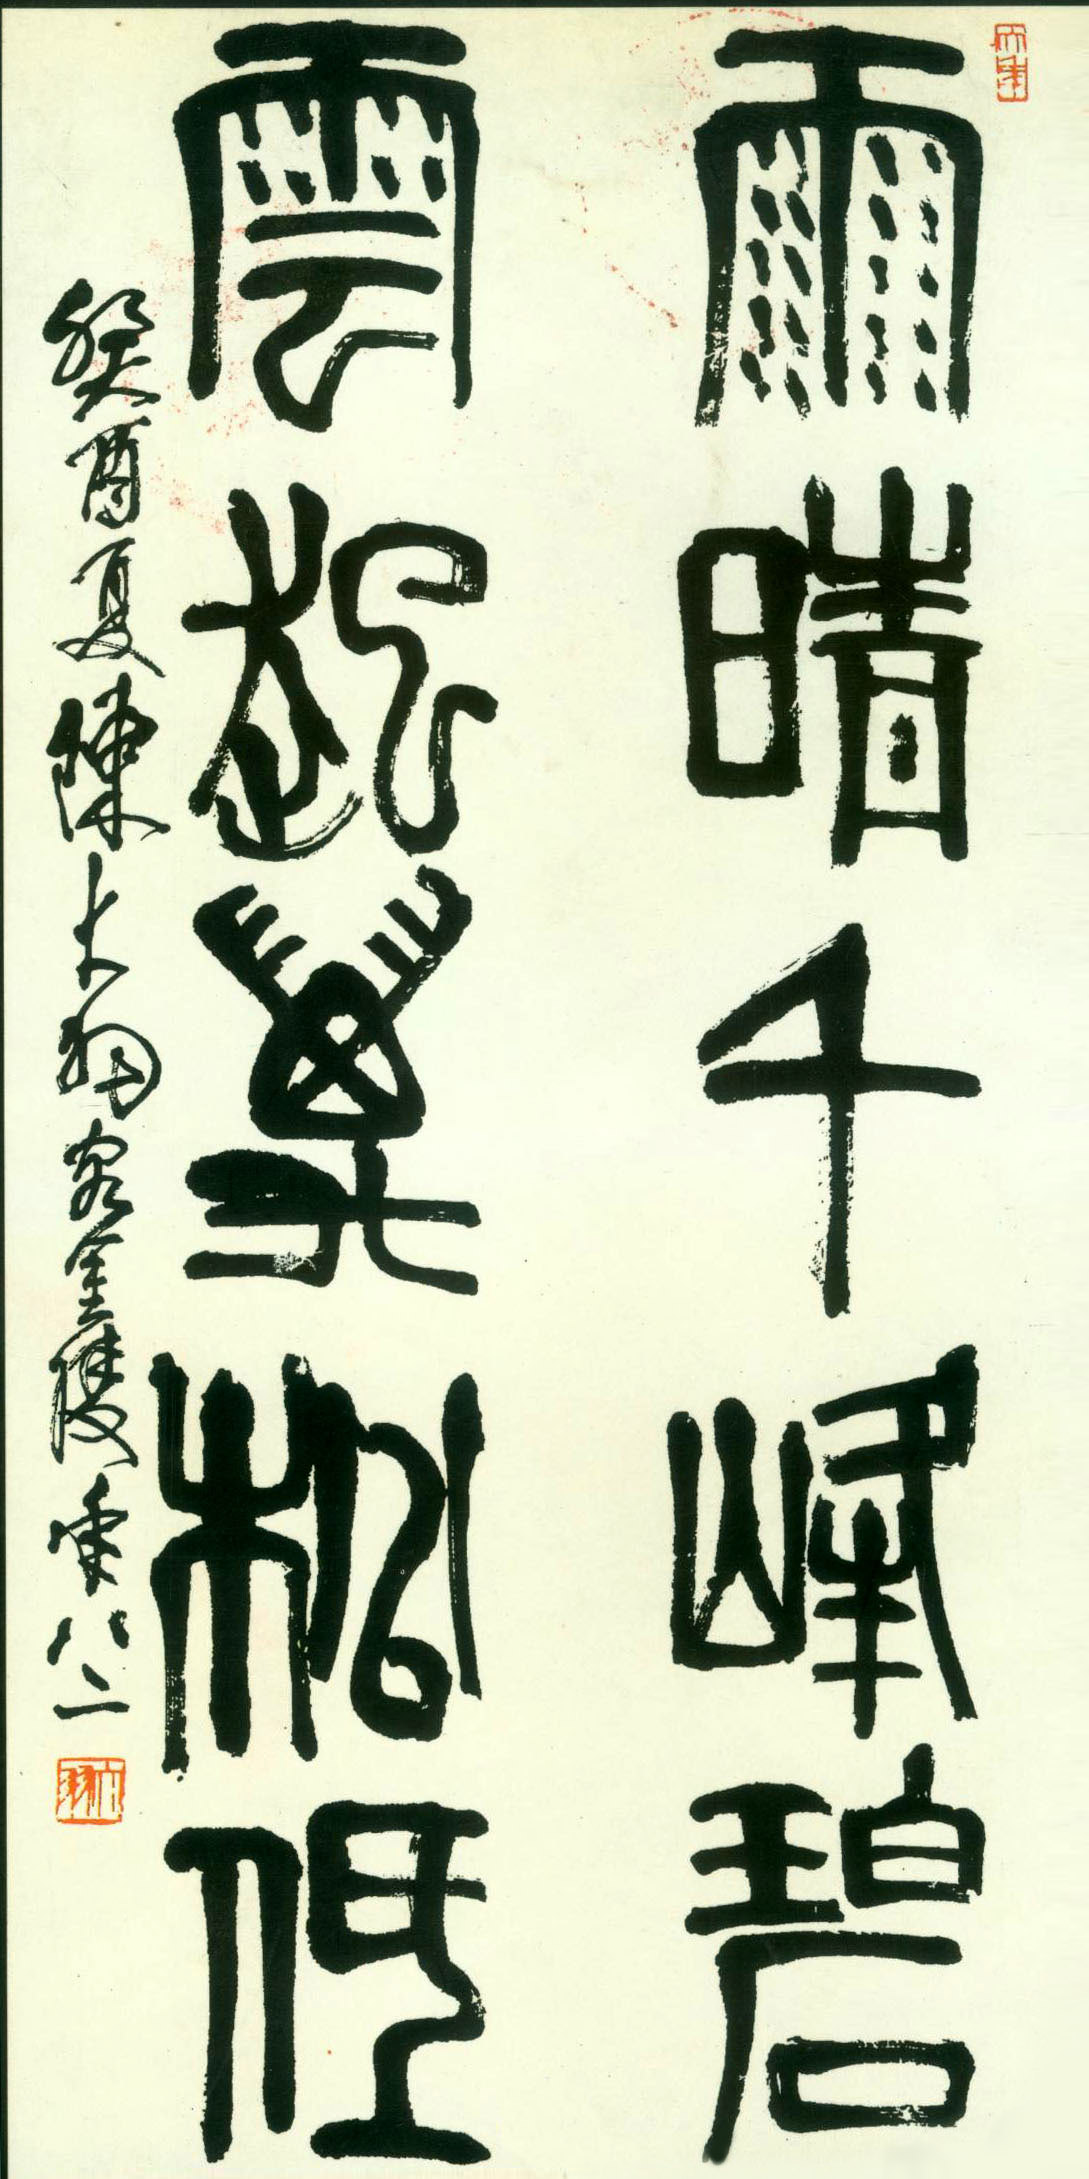 雨晴千峰碧
雲起萬松低
癸酉夏陳大羽客金陵年八二
大羽